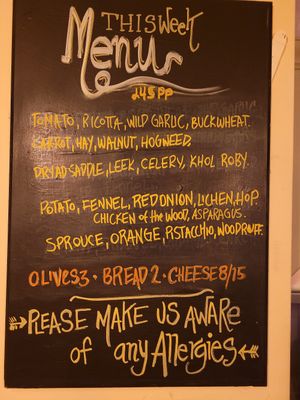 THIS Week
Menu
£45PP
TOMATO, RICOTTA, WILD GARLIC, BUCKWHEAT.
CARROT, HAY, WALNUT, HOGWEED.
DRYAD SADDLE, LEEK, CELERY, KHOL ROBY.
POTATO, FENNEL, RED ONION, LICHEN, HOP.
CHICKEN of the WOOD, ASPARAGUS.
SPROUCE, ORANGE, PISTACCHIO, WOODRUFF.
OLIVES3 • BREAD 2 • CHEESE 8/15
PLEASE MAKE US AWARE
of any Allergies